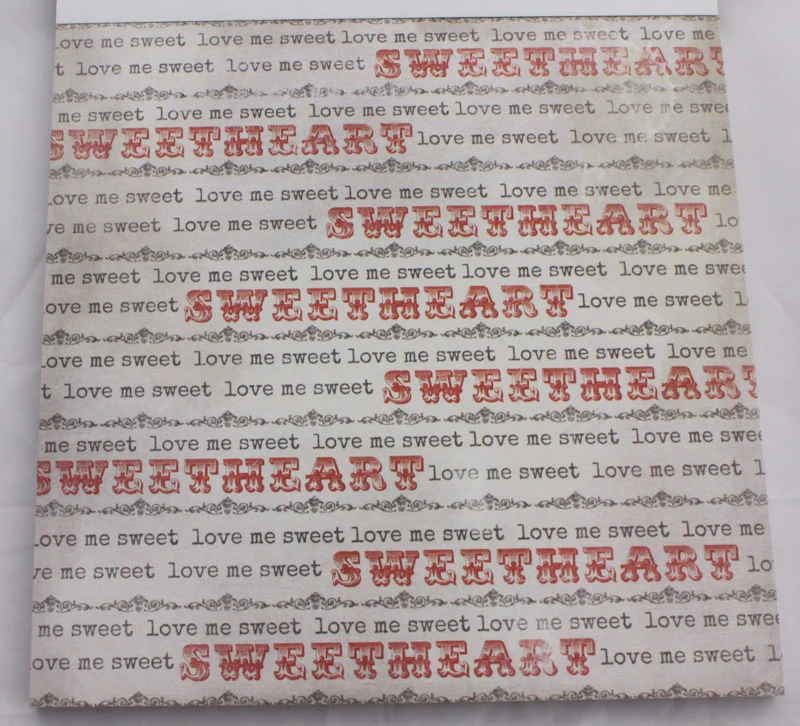 love me sweet love me sweet love me sweet love me sweet love me
t love me sweet love me sweet SWEETHEART
me sweet love me sweet love me sweet love me sweet love me swee
SWEETHEART love me sweet love me sweet l
love me sweet love me sweet love me sweet love me sweet love me
ve me sweet love me sweet SWEETHEART lo
me sweet love me sweet love me sweet love me sweet love me swee
ove me sweet SWEETHEART love me sweet love me sweet l
love me sweet love me sweet love me sweet love me sweet love me
t love me sweet love me sweet SWEETHEART
me sweet love me sweet love me sweet love me sweet love me swee
SWEETHEART love me sweet love me sweet l
love me sweet love me sweet love me sweet love me sweet love me
ve me sweet love me sweet SWEETHEART lo
me sweet love me sweet love me sweet love me sweet love me swee
ove me sweet SWEETHEART love me sweet love me sweet l